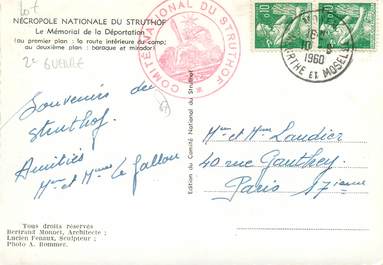 lot
NÉCROPOLE NATIONALE DU STRUTHOF
Le Mémorial de la Déportation
(au premier plan : la route intérieure du camp;
au deuxième plan : baraque et mirador)
2e GUERRE
COMITÉ NATIONAL DU STRUTHOF
0,10
0,10
18
10
1960
MEURTHE ET MOSELLE
Souvenirs du
Struthof.
Amitiés
Mr et Mme Le Gallou
67
Edition du Comité National du Struthof
Mr et Mme Laudier
40 rue Gauthey
Paris 17ième
Tous droits réservés
Bertrand Monnet, Architecte ;
Lucien Fenaux, Sculpteur ;
Photo A. Rommer.